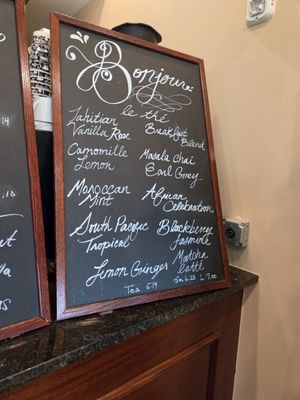 Bonjour:
le thé
Tahitian
Vanilla Rose
Camomille
Lemon
Moroccan
Mint
South Pacific
Tropical
Lemon Ginger
Breakfast
Blend
Masala Chai
Earl Grey
African
Celebration
Blackberry
Jasmine
Matcha
Latté
Sm 6.25 L 7.00
Tea 5.14